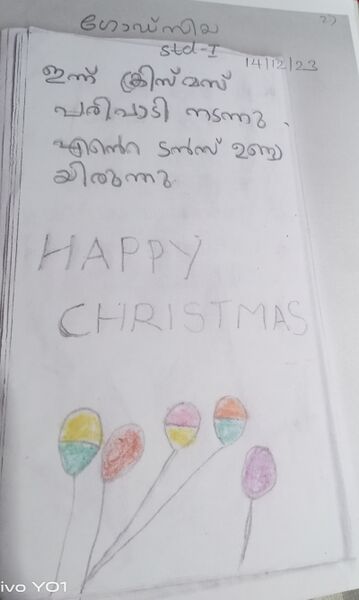 ഗോഡ്സിയ
std-I
14/12/23
ഇന്ന് ക്രിസ്മസ്
പരിപാടി നടന്നു.
എൻ്റെ ടൻസ് ഉണ്ടാ
യിരുന്നു.
HAPPY
CHRISTMAS
vivo Y01